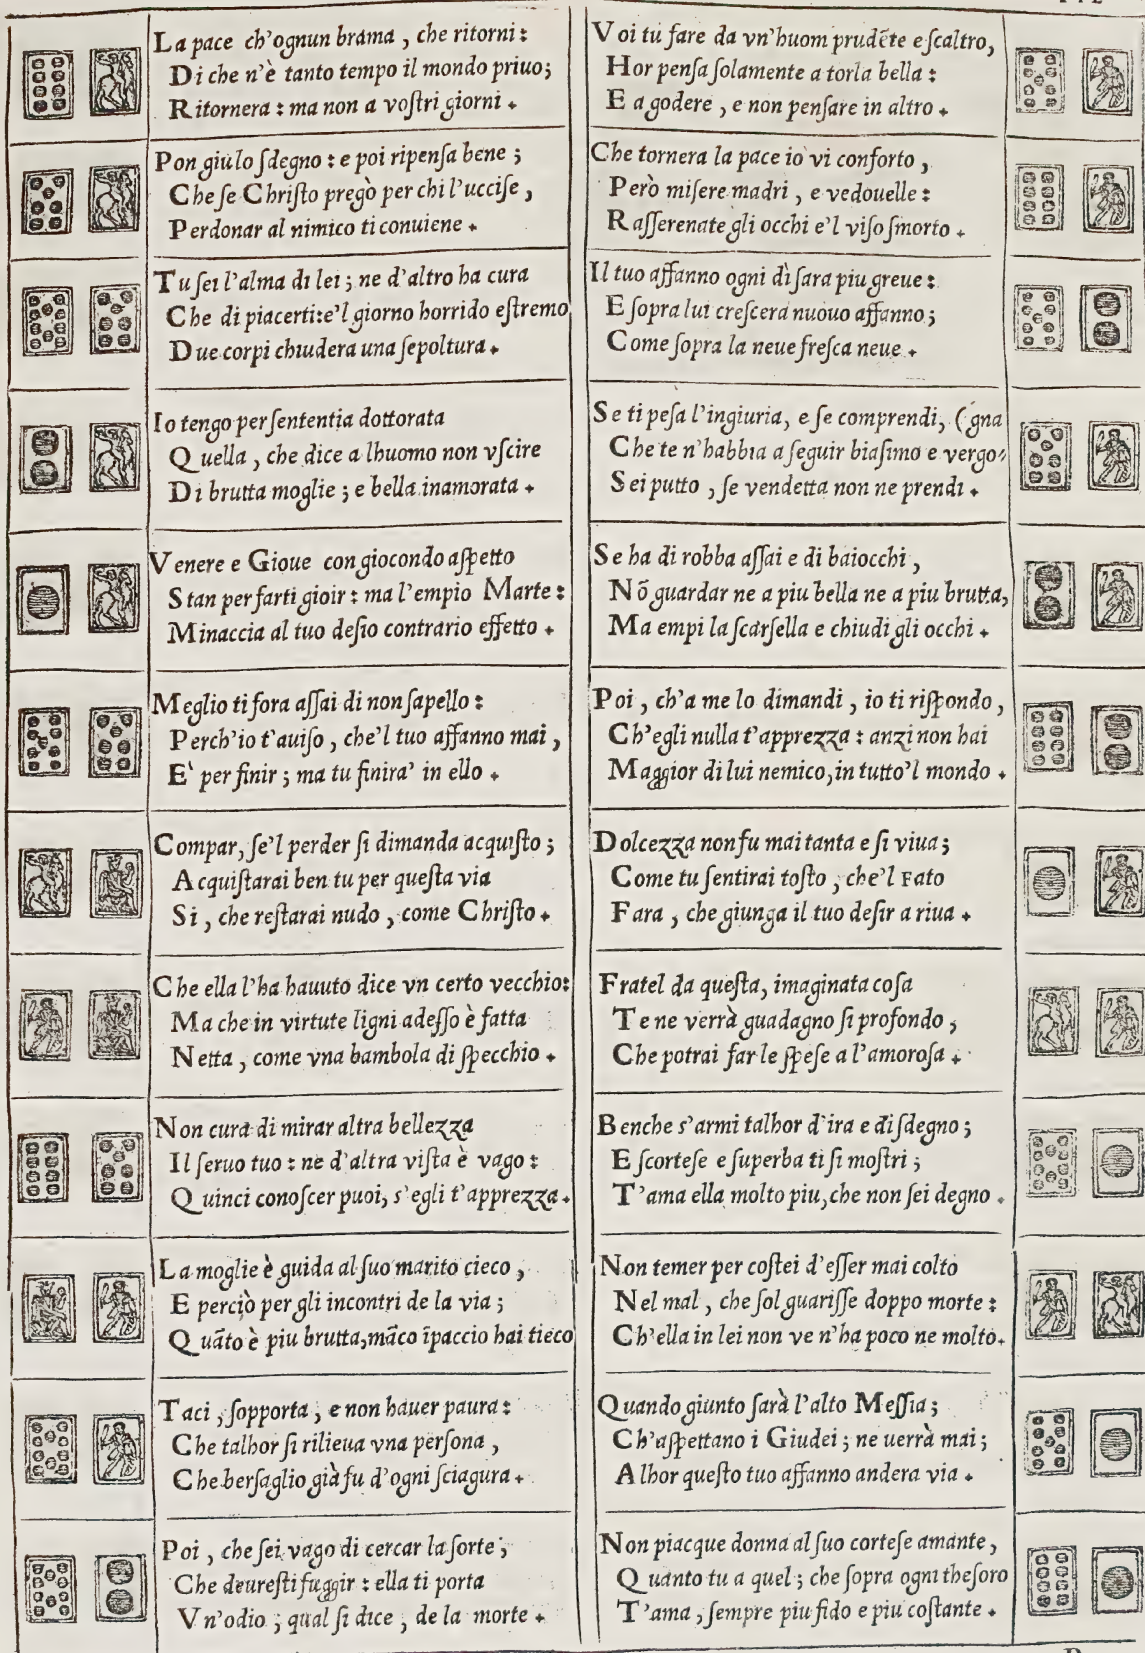 La pace ch'ognun brama , che ritorni :
Di che n'è tanto tempo il mondo priuo ;
Ritornera : ma non a voſtri giorni .
Pon giu lo ſdegno : e poi ripenſa bene ;
Che ſe Chriſto pregò per chi l'ucciſe ,
Perdonar al nimico ti conuiene .
Tu ſei l'alma di lei ; ne d'altro ha cura
Che di piacerti : e'l giorno horrido eſtremo
Due corpi chiudera una ſepoltura .
Io tengo per ſententia dottorata
Quella , che dice a lhuomo non vſcire
Di brutta moglie ; e bella inamorata .
Venere e Gioue con giocondo aſpetto
Stan per farti gioir : ma l'empio Marte :
Minaccia al tuo deſio contrario effetto .
Meglio ti fora aſſai di non ſapello :
Perch'io t'auiſo , che'l tuo affanno mai ,
E' per finir ; ma tu finira' in ello .
Compar, ſe'l perder ſi dimanda acquiſto ;
Acquiſtarai ben tu per queſta via
Si , che reſtarai nudo , come Chriſto .
Che ella l'ha hauuto dice vn certo vecchio :
Ma che in virtute ligni adeſſo è fatta
Netta , come vna bambola di ſpecchio .
Non cura di mirar altra bellezza
Il ſeruo tuo : ne d'altra viſta è vago :
Quinci conoſcer puoi, s'egli t'apprezza .
La moglie è guida al ſuo marito cieco ,
E perciò per gli incontri de la via ;
Quāto è piu brutta, māco īpaccio hai tieco
Taci , ſopporta , e non hauer paura :
Che talhor ſi rilieua vna perſona ,
Che berſaglio già fu d'ogni ſciagura .
Poi , che ſei vago di cercar la ſorte ;
Che deureſti fuggir : ella ti porta
Vn'odio ; qual ſi dice , de la morte .
Voi tu fare da vn'huom prudēte e ſcaltro,
Hor penſa ſolamente a torla bella :
E a godere , e non penſare in altro .
Che tornera la pace io vi conforto ,
Però miſere madri , e vedouelle :
Raſſerenate gli occhi e'l viſo ſmorto .
Il tuo affanno ogni dì ſara piu greue :
E ſopra lui creſcera nuouo affanno ;
Come ſopra la neue freſca neue .
Se ti peſa l'ingiuria, e ſe comprendi, (gna
Che te n'habbia a ſeguir biaſimo e vergo-
Sei putto , ſe vendetta non ne prendi .
Se ha di robba aſſai e di baiocchi ,
Nō guardar ne a piu bella ne a piu brutta,
Ma empi la ſcarſella e chiudi gli occhi .
Poi , ch'a me lo dimandi , io ti riſpondo ,
Ch'egli nulla t'apprezza : anzi non hai
Maggior di lui nemico, in tutto'l mondo .
Dolcezza non fu mai tanta e ſi viua ;
Come tu ſentirai toſto , che'l Fato
Fara , che giunga il tuo deſir a riua .
Fratel da queſta, imaginata coſa
Te ne verrà guadagno ſi profondo ,
Che potrai far le ſpeſe a l'amoroſa .
Benche s'armi talhor d'ira e di ſdegno ;
E ſcorteſe e ſuperba ti ſi moſtri ;
T'ama ella molto piu, che non ſei degno .
Non temer per coſtei d'eſſer mai colto
Nel mal , che ſol guariſſe doppo morte :
Ch'ella in lei non ve n'ha poco ne molto.
Quando giunto ſarà l'alto Meſſia ;
Ch'aſpettano i Giudei ; ne uerrà mai ;
Alhor queſto tuo affanno andera via .
Non piacque donna al ſuo corteſe amante ,
Quanto tu a quel ; che ſopra ogni theſoro
T'ama , ſempre piu fido e piu coſtante .